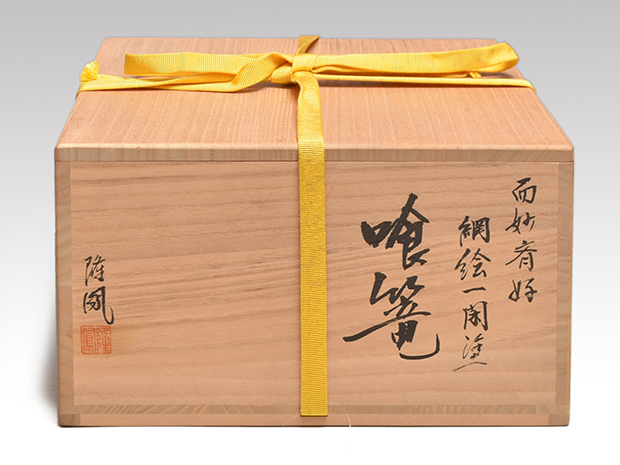 而妙斎好
網絵一閑塗
喰篭
隆鳳